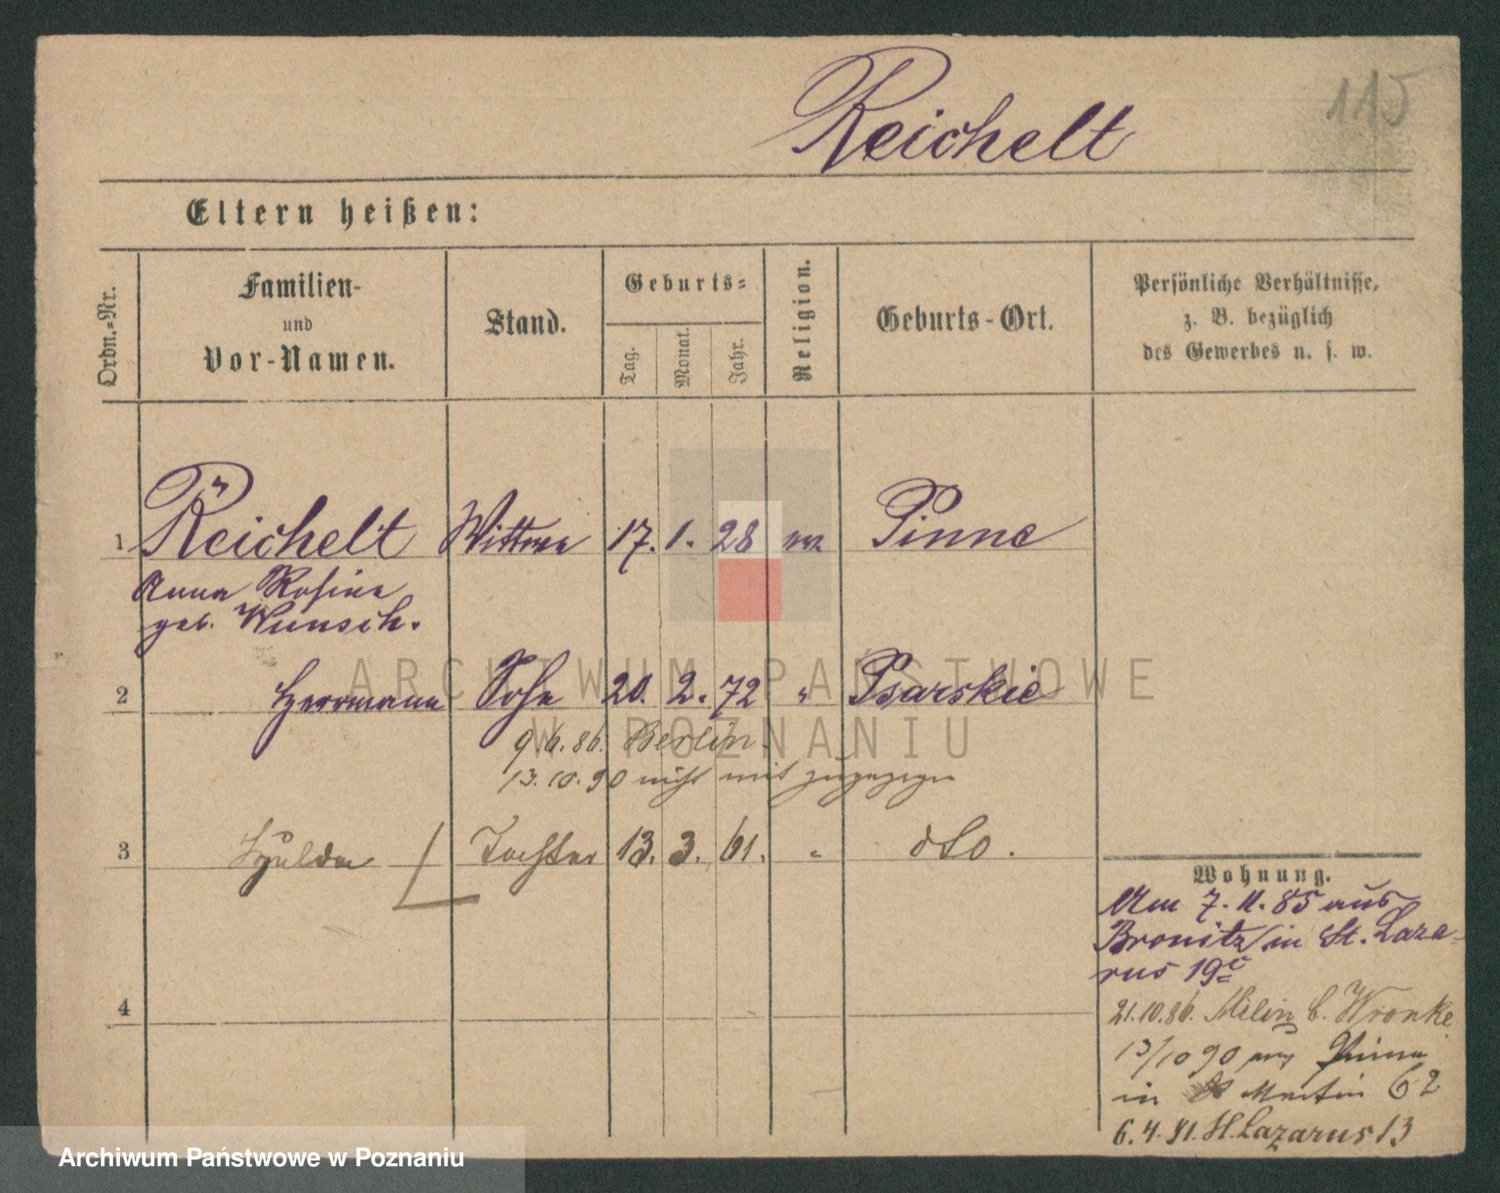 115
Reichelt
Eltern heißen:
Ordn.=Nr.
Familien-
und
Vor-Namen.
Stand.
Geburts=
Tag.
Monat.
Jahr.
Religion.
Geburts-Ort.
Persönliche Verhältnisse,
z. B. bezüglich
des Gewerbes u. s. w.
1 Reichelt Wittwe 17. 1. 28 Pinne
Anna Rosine
geb. Wunsch.
2 Herrmann Sohn 20. 2. 72 " Psarskie
9.6.86. Berlin.
13.10.90 nicht mit zugezogen
3 Hulda Tochter 13. 3. 61. " dto.
4
Wohnung.
Am 7. 11. 85 aus
Bronitz in St. Laza-
rus 19c
21.10.86. b. Wronke
13/10 90 aus Pinne
in St Martin 62
6.4.91. St. Lazarus 13
ARCHIWUM PAŃSTWOWE
W POZNANIU
Archiwum Państwowe w Poznaniu